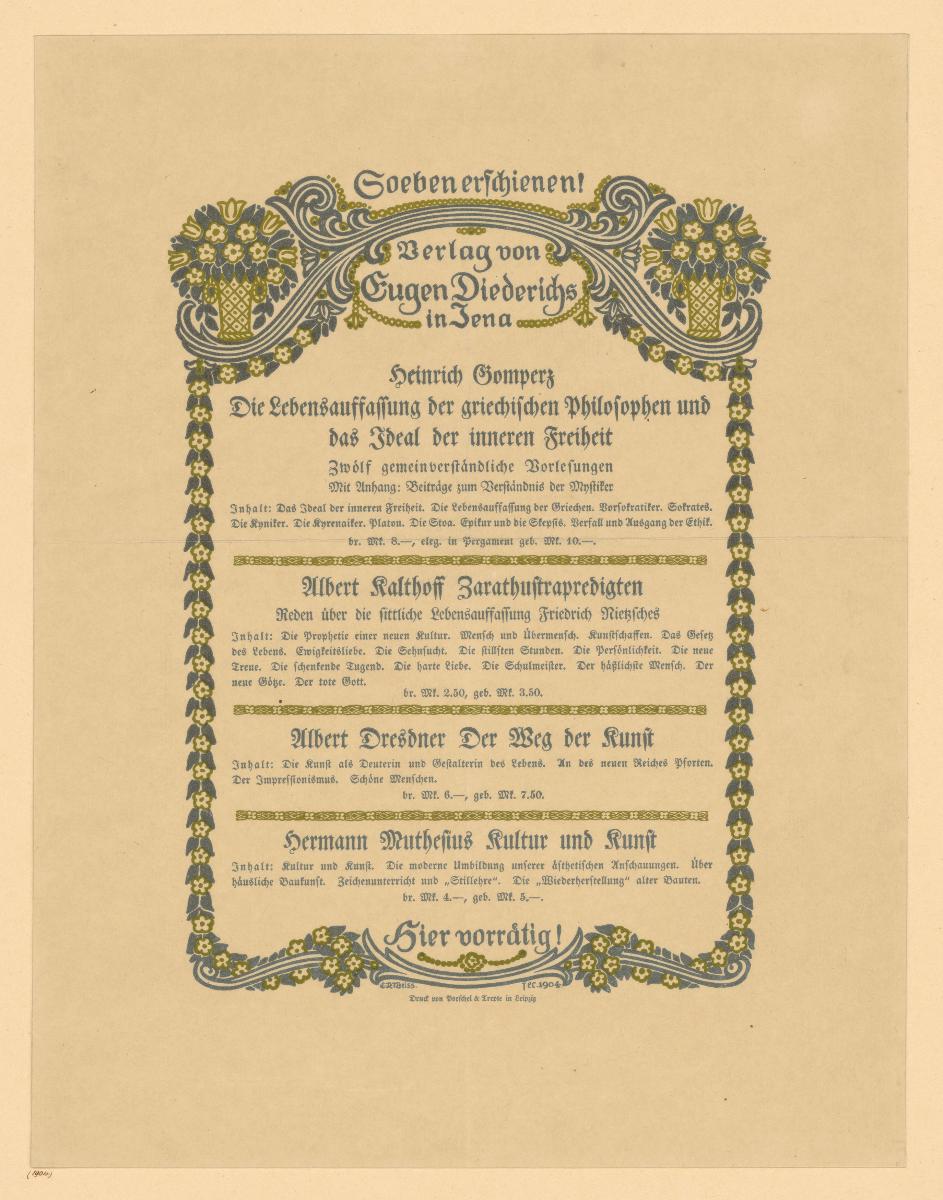 Soeben erschienen!
Verlag von
Eugen Diederichs
in Jena
Heinrich Gomperz
Die Lebensauffassung der griechischen Philosophen und
das Ideal der inneren Freiheit
Zwölf gemeinverständliche Vorlesungen
Mit Anhang: Beiträge zum Verständnis der Mystiker
Inhalt: Das Ideal der inneren Freiheit. Die Lebensauffassung der Griechen. Vorsokratiker. Sokrates.
Die Kyniker. Die Kyrenaiker. Platon. Die Stoa. Epikur und die Skepsis. Verfall und Ausgang der Ethik.
br. Mk. 8.—, eleg. in Pergament geb. Mk. 10.—.
Albert Kalthoff Zarathustrapredigten
Reden über die sittliche Lebensauffassung Friedrich Nietzsches
Inhalt: Die Prophetie einer neuen Kultur. Mensch und Übermensch. Kunstschaffen. Das Gesetz
des Lebens. Ewigkeitsliebe. Die Sehnsucht. Die stillsten Stunden. Die Persönlichkeit. Die neue
Treue. Die schenkende Tugend. Die harte Liebe. Die Schulmeister. Der häßlichste Mensch. Der
neue Götze. Der tote Gott.
br. Mk. 2.50, geb. Mk. 3.50.
Albert Dresdner Der Weg der Kunst
Inhalt: Die Kunst als Deuterin und Gestalterin des Lebens. An des neuen Reiches Pforten.
Der Impressionismus. Schöne Menschen.
br. Mk. 6.—, geb. Mk. 7.50.
Hermann Muthesius Kultur und Kunst
Inhalt: Kultur und Kunst. Die moderne Umbildung unserer ästhetischen Anschauungen. Über
häusliche Baukunst. Zeichenunterricht und „Stillehre“. Die „Wiederherstellung“ alter Bauten.
br. Mk. 4.—, geb. Mk. 5.—.
Hier vorrätig!
E.R.Weiss. fec. 1904
Druck von Poeschel & Trepte in Leipzig
(1904)